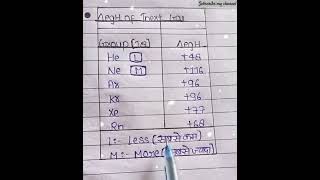 Subscribe my channel
ΔegH of Inert Gas
Group (18) ΔegH
He L +48
Ne M +116
Ar +96
Kr +96
Xe +77
Rn +68
L:- Less (सबसे कम)
M:- More (सबसे ज्यादा)